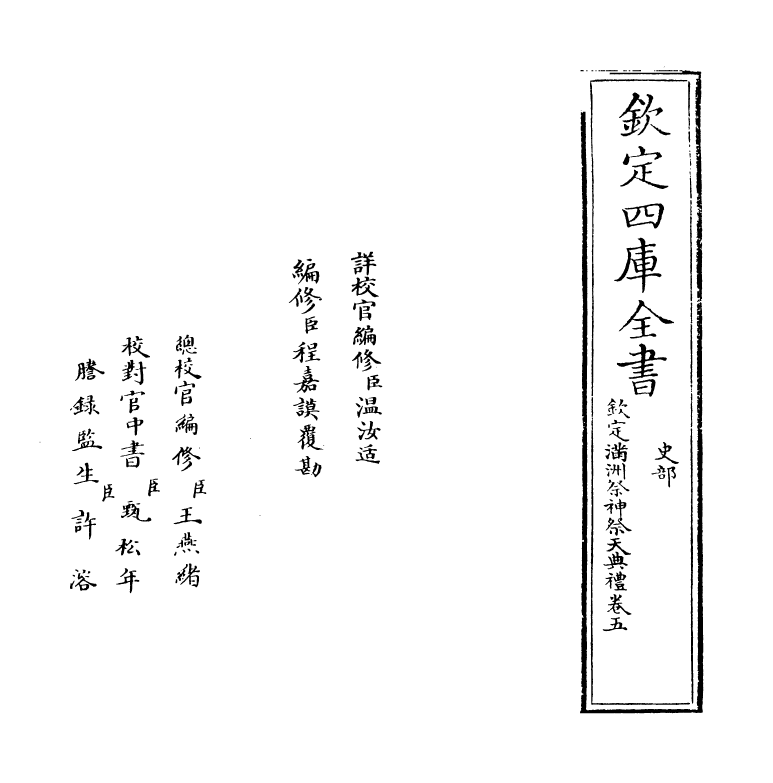 欽定四庫全書
史部
欽定滿洲祭神祭天典禮卷五
詳校官編修臣温汝适
編修臣程嘉謨覆勘
總校官編修臣王燕緒
校對官中書臣甄松年
謄錄監生臣許溶